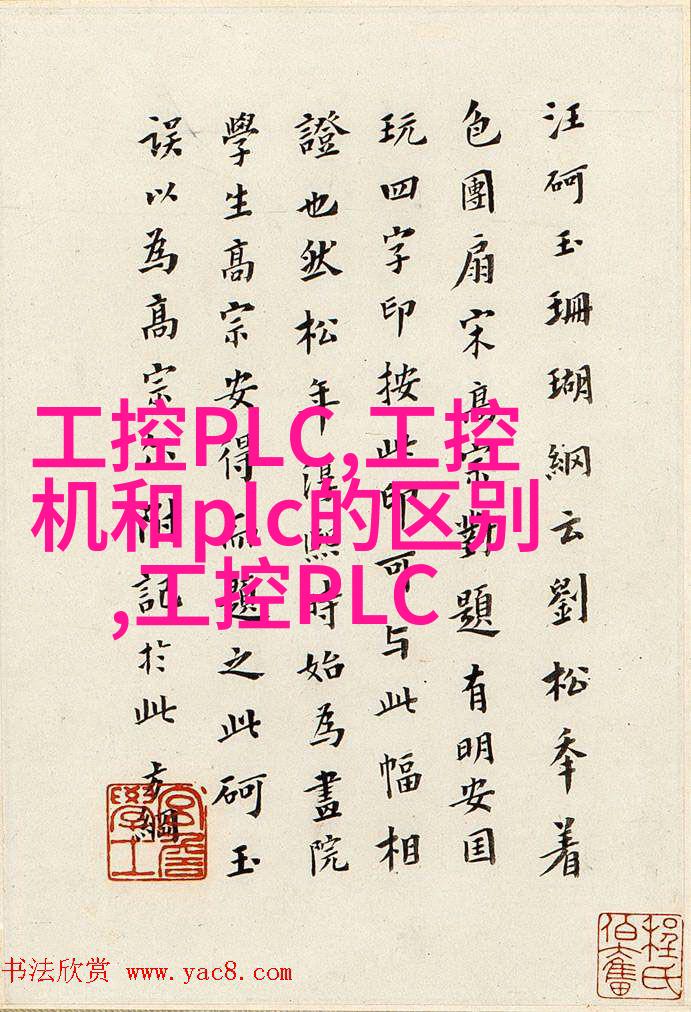 汪砢玉珊瑚網云劉松年着
色團扇宋高宗對題有明安国
玩四字印按此印可与此幅相
證也然松年淳熙時始為畫院
學生高宗安得而題之此砢玉
誤以為高宗尔附記於此方綱
工控PLC,工控
机和plc的区别
,工控PLC
程氏
伯奮
书法欣赏 www.yac8.com